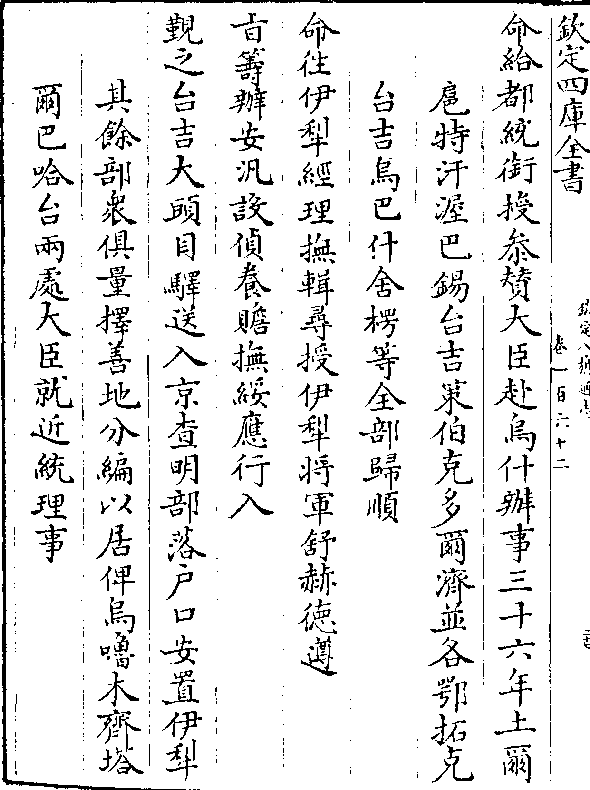 欽定四庫全書
命給都統銜授叅贊大臣赴烏什辦事三十六年土爾
扈特汗渥巴錫台吉策伯克多爾濟並各鄂拓克
台吉烏巴什舍楞等全部歸順
命往伊犁經理撫輯尋授伊犁將軍舒赫徳遵
㫖籌辦安汎設偵養贍撫綏應行入
覲之台吉大頭目驛送入京查明部落户口安置伊犁
其餘部衆俱量擇善地分編以居俾烏嚕木齊塔
爾巴哈台兩處大臣就近統理事
欽定八旗通志
卷一百六十二